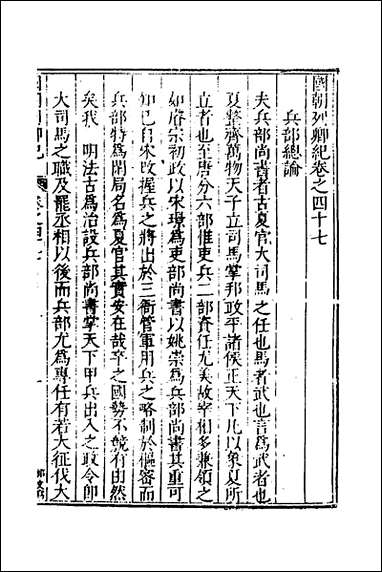 國朝列卿紀卷之四十七
兵部總論
夫兵部尚書者古夏官大司馬之任也馬者武也言爲武者也
夏整齊萬物天子立司馬掌邦政平諸侯正天下凡以象夏所
立者也至唐分六部惟吏兵二部責任尤美故宰相多兼領之
如唐宗初政以宋璟爲吏部尚書以姚崇爲兵部尚書其重可
知已自宋改握兵之將出於三衙管軍用兵之略制於樞密而
兵部特爲閑局名爲夏官其實安在哉卒之國勢不競有由然
矣我 明法古爲治設兵部尚書掌天下甲兵出入之政令即
大司馬之職及罷丞相以後而兵部尤爲專任有若大征伐大